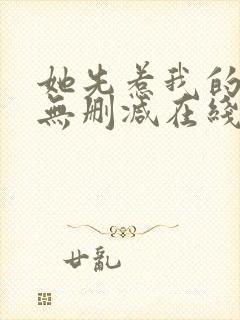 她先惹我的
無刪減在綫
廿亂